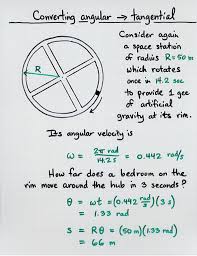 Converting angular → tangential
Consider again
a space station
of radius R = 50 m
which rotates
once in 14.2 sec
to provide 1 gee
of artificial
gravity at its rim.
R
Its angular velocity is
ω = 2π rad / 14.2 s = 0.442 rad/s
How far does a bedroom on the
rim move around the hub in 3 seconds?
θ = ωt = (0.442 rad/s)(3 s)
= 1.33 rad
s = Rθ = (50 m)(1.33 rad)
= 66 m